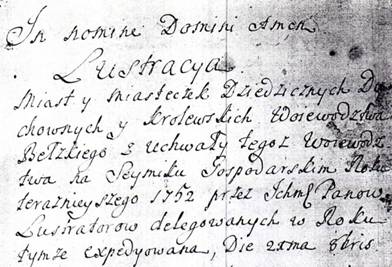 In nomine Domini Amen
Lustracya
Miast y Miasteczek Dziedzicznych Du
chownych y Krolewskich Woiewodztwa
Bełzkiego z uchwały tegoż Woiewodz
twa na Seymiku Gospodarskim Roku
teraznieyszego 1752 przez Ichmć Panow
Lustratorow delegowanych w Roku
tymże expedyowana, Die 21ma 8bris